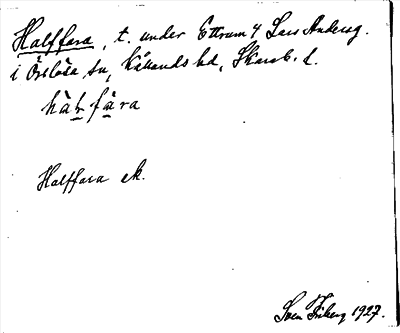 Halffara, t. under Ettrum 4 Lars Andersg.
i Örslösa sn, Kållands hd, Skarab. l.
hàḷfà̤ra
Halffara ek.
Sven Friberg 1927.